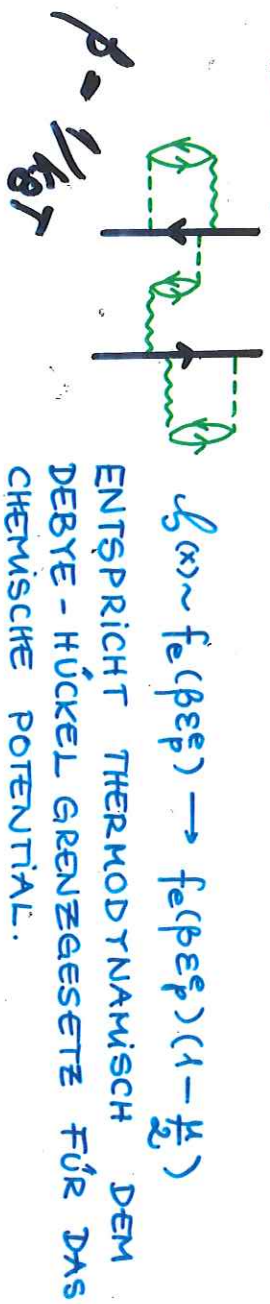 β = 1/kBT
f(x) ~ fe(βεp) → fe(βεp)(1 - μ/2)
ENTSPRICHT THERMODYNAMISCH DEM
DEBYE-HÜCKEL GRENZGESETZ FÜR DAS
CHEMISCHE POTENTIAL.